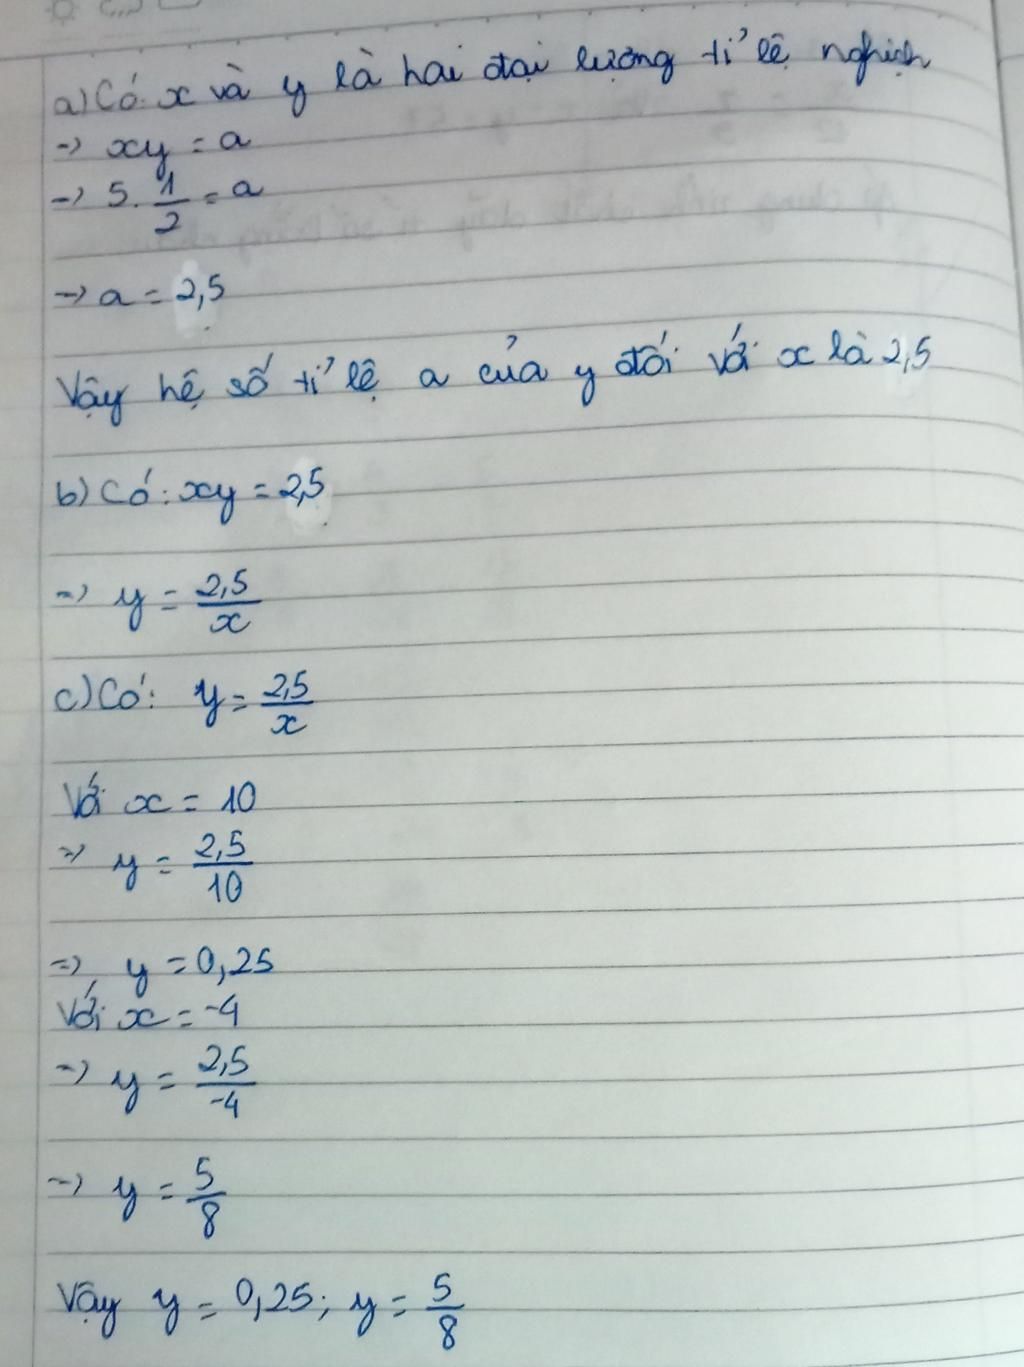 a) Có: x và y là hai đại lượng tỉ lệ nghịch
=> xy = a
=> 5. 1/2 = a
=> a = 2,5
Vậy hệ số tỉ lệ a của y đối với x là 2,5
b) Có: xy = 2,5
=> y = 2,5/x
c) Có: y = 2,5/x
Với x = 10
=> y = 2,5/10
=> y = 0,25
Với x = -4
=> y = 2,5/-4
=> y = 5/8
Vậy y = 0,25; y = 5/8